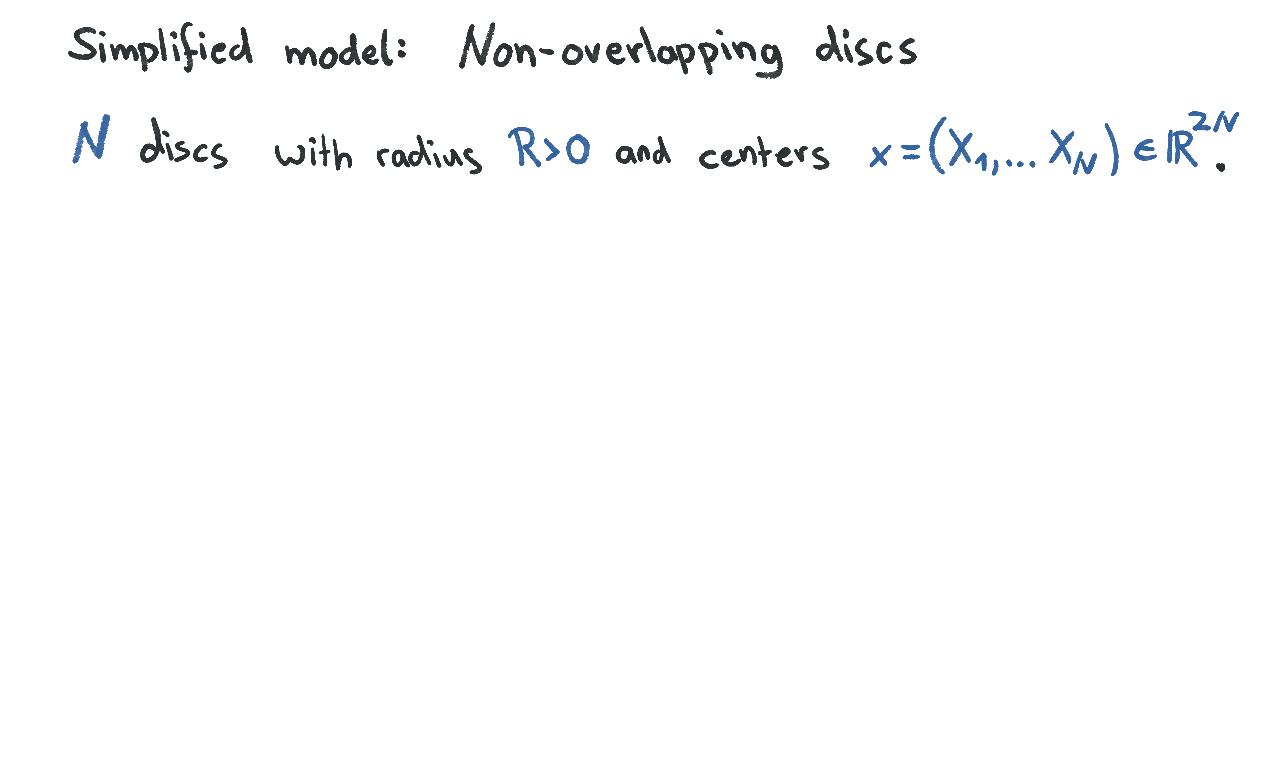 Simplified model: Non-overlapping discs
N discs with radius R>0 and centers x=(X₁,... X_N) ∈ ℝ²ᴺ.